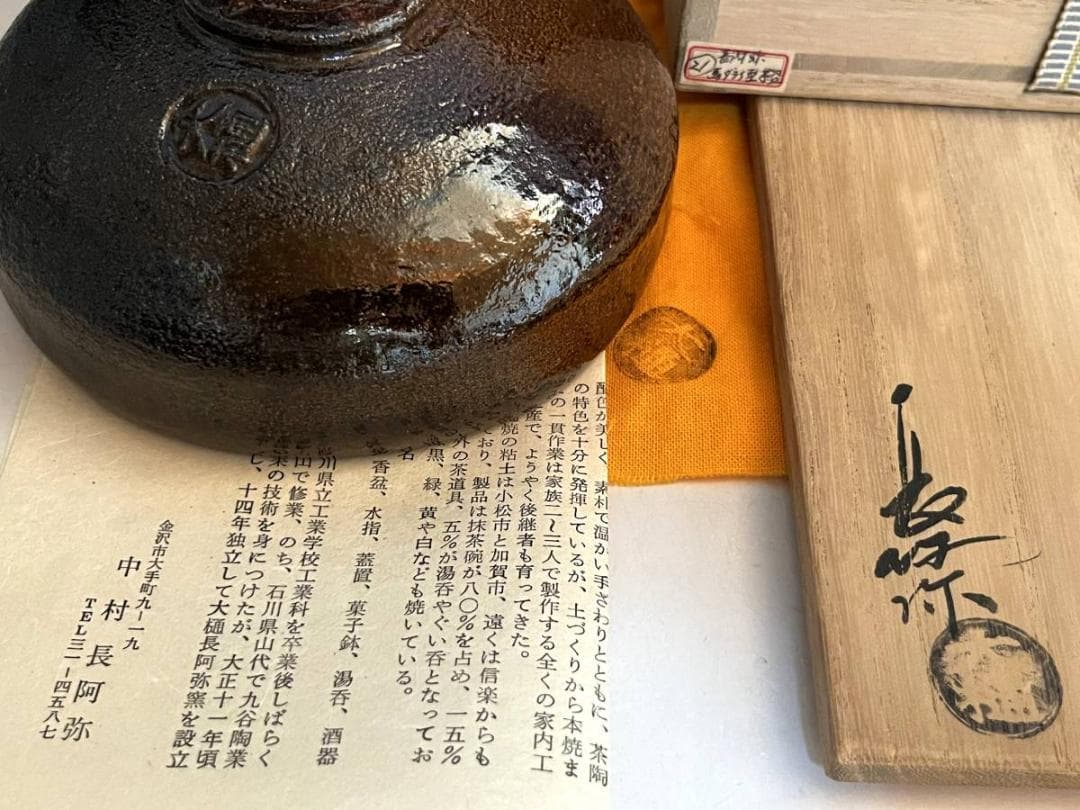 配色が美しく、素朴で温かい手ざわりとともに、茶陶
の特色を十分に発揮しているが、土づくりから本焼ま
の一貫作業は家族二〜三人で製作する全くの家内工
産で、ようやく後継者も育ってきた。
焼の粘土は小松市と加賀市、遠くは信楽からも
ており、製品は抹茶碗が八〇％を占め、一五％
外の茶道具、五％が湯呑やぐい呑となってお
黒、緑、黄や白なども焼いている。
名
香盆、水指、蓋置、菓子鉢、湯呑、酒器
川県立工業学校工業科を卒業後しばらく
山で修業、のち、石川県山代で九谷陶業
の技術を身につけたが、大正十一年頃
し、十四年独立して大樋長阿弥窯を設立
金沢市大手町九ー一九
中村長阿弥
TEL三一ー四五八七
長阿弥